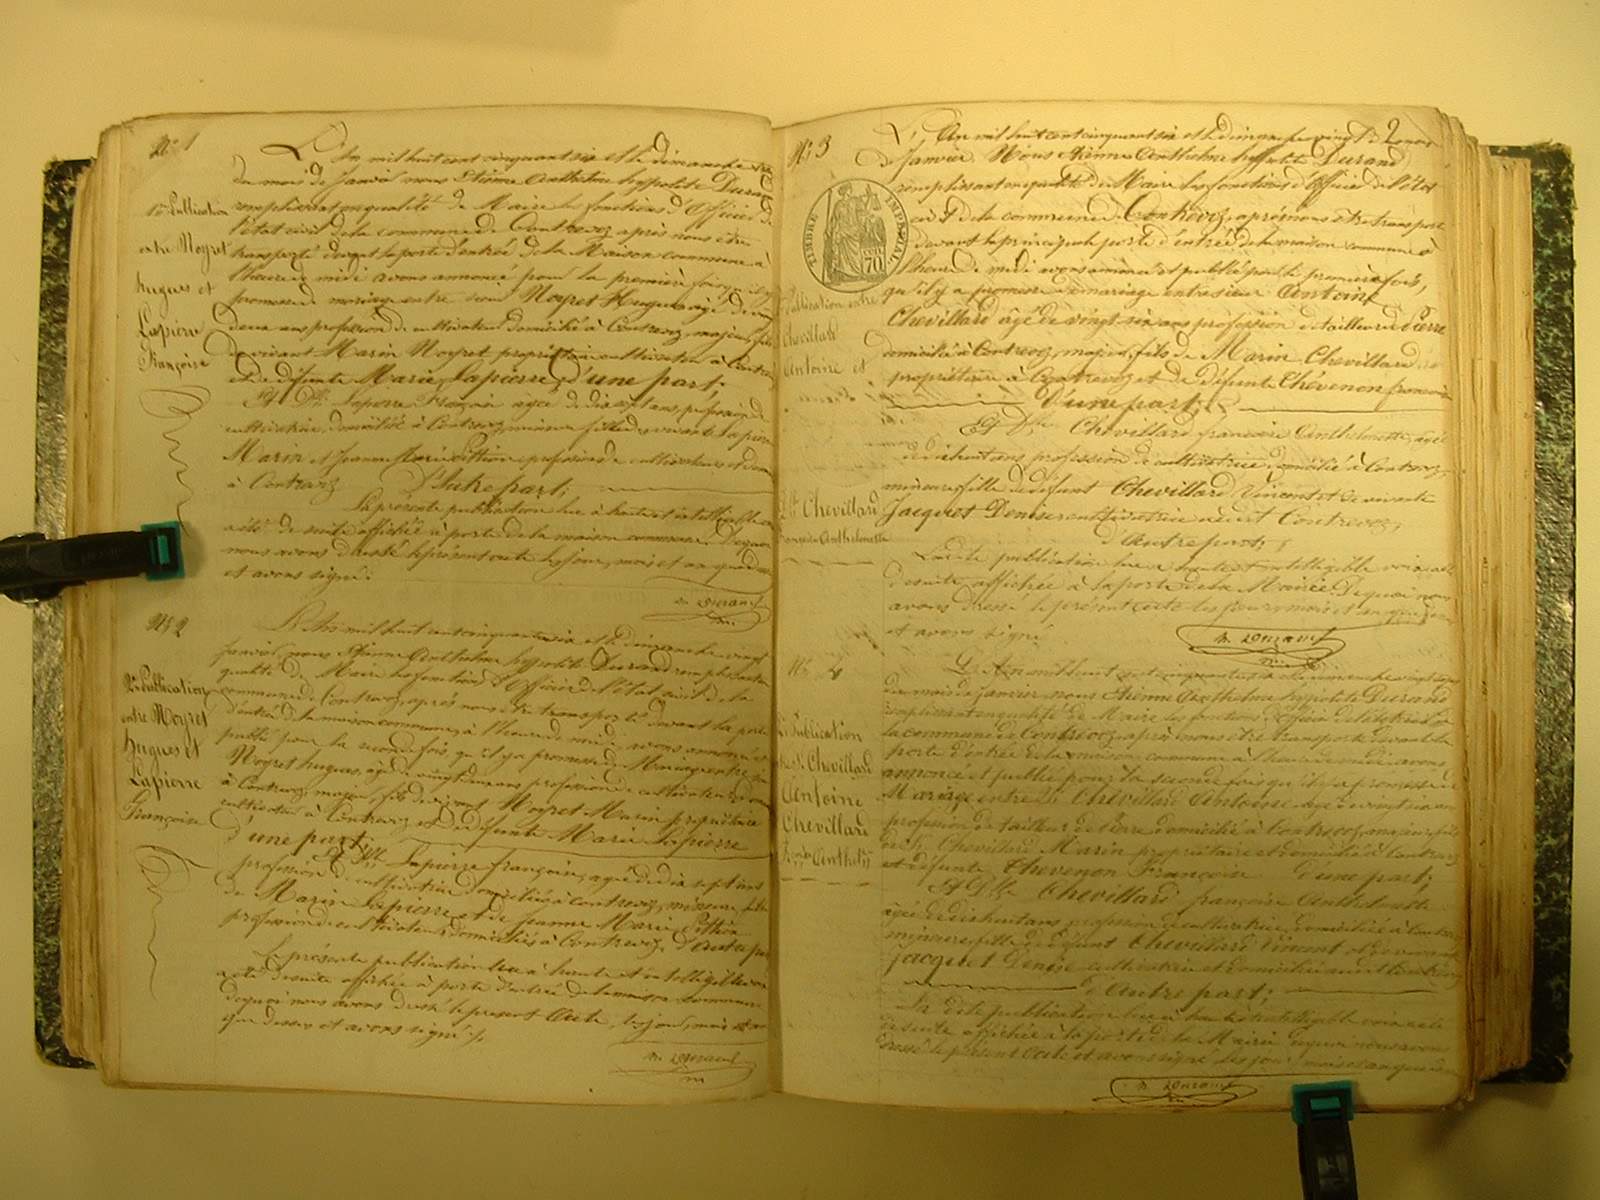 N° 1
L'An mil huit cent cinquante six et le dimanche
du mois de Janvier nous Etienne Anthelme hyppolite Durand
remplissant en qualité de Maire les fonctions d'Officier de
l'état civil de la commune de Contrevoz après nous être
transporté devant la porte d'entrée de la Maison commune à
l'heure de midi avons annoncé pour la première fois qu'il y
promesse de mariage entre sieur Noyret Hugues agé de vingt
deux ans profession de cultivateur domicilié à Contrevoz, majeur, fils
de vivant Marin Noyret propriétaire cultivateur à Contrevoz
et de défunte Marie Lapierre, d'une part;
Et Dlle Lapierre Françoise agée de dix sept ans, profession de
cultivatrice, domiciliée à Contrevoz, mineure fille de vivants Lapierre
Marin et Jeanne Marie Pithion profession de cultivateurs et
à Contrevoz D'autre part;
La présente publication lue à haute et intelligible
a été de suite affichée à porte de la maison commune. De quoi
nous avons dressé le présent acte les jour, mois et an que
et avons signé.
Durand
1re Publication
entre Noyret
hugues et
Lapierre
Françoise
N° 2
L'An mil huit cent cinquante six et le dimanche vingt
janvier, nous Etienne Anthelme hyppolite Durand remplissant
qualité de Maire les fonctions d'Officier de l'état civil de la
commune de Contrevoz, après nous être transporté devant la porte
d'entrée de la maison commune, à l'heure de midi, avons annoncé et
publié pour la seconde fois qu'il y a promesse de Mariage entre
Noyret hugues, agé de vingt deux ans profession de cultivateur
à Contrevoz, majeur, fils de vivant Noyret Marin propriétaire
cultivateur à Contrevoz et de défunte Marie Lapierre
d'une part;
Et Dlle Lapierre françoise, agée de dix sept ans
profession de cultivatrice domiciliée à Contrevoz, mineure, fille
de Marin Lapierre et de Jeanne Marie Pithion
profession de cultivateurs domiciliés à Contrevoz, D'autre part
La présente publication lue à haute et intelligible voix
a été de suite affichée à porte d'entrée de la maison commune
De quoi nous avons dressé le présent Acte, les jour, mois et an
que dessus et avons signé
Durand
2e Publication
entre Noyret
Hugues et
Lapierre
Françoise
N° 3
L'An mil huit cent cinquante six et le dimanche vingt
de Janvier Nous Etienne Anthelme hyppolite Durand
remplissant en qualité de Maire les fonctions d'Officier de l'état
civil de la commune de Contrevoz, après nous être transporté
devant la principale porte d'entrée de la maison commune à
l'heure de midi avons annoncé et publié pour la première fois,
qu'il y a promesse de mariage entre sieur Antoine
Chevillard âgé de vingt six ans profession de tailleur de Pierre
domicilié à Contrevoz, majeur, fils de Marin Chevillard
propriétaire à Contrevoz et de défunte Chevenon françoise
D'une part;
Et Dlle Chevillard françoise Anthelmette, agée
de dix huit ans profession de cultivatrice, domicilié à Contrevoz,
mineure, fille de défunt Chevillard Vincent et de vivante
Jacquet Denise cultivatrice Contrevoz,
d'Autre part;
La dite publication lue à haute et intelligible voix a été
de suite affichée à la porte de la Mairie. De quoi nous
avons dressé le présent acte les jour mois et an que
et avons signé
Durand
TIMBRE IMPERIAL
70
Publication entre
Chevillard
Antoine et
Dlle Chevillard
françoise Anthelmette
N° 4
L'An mil huit cent cinquante six et le dimanche vingt sept
du mois de janvier nous Etienne Anthelme hyppolite Durand
remplissant en qualité de Maire les fonctions d'officier de l'état civil de
la commune de Contrevoz, après nous être transporté devant la
porte d'entrée de la maison commune à l'heure de midi avons
annoncé et publié pour la seconde fois qu'il y a promesse de
Mariage entre le Sr Chevillard Antoine agé de vingt six ans
profession de tailleur de Pierre domicilié à Contrevoz, majeur, fils
Chevillard Marin propriétaire et domicilié à Contrevoz
et défunte Chevenon Françoise d'une part;
Et Dlle Chevillard françoise Anthelmette
âgée de dix huit ans profession de cultivatrice, domiciliée à Contrevoz
mineure, fille de défunt Chevillard Vincent et de vivante
Jacquet Denise cultivatrice et domiciliée Contrevoz
d'Autre part;
La dite publication lue à haute et intelligible voix a été
de suite affichée à la porte de la Mairie de quoi nous avons
dressé le présent Acte et avons signé les jour mois et an que
Durand
Publication
Sr Chevillard
Antoine
Chevillard
Anthelme